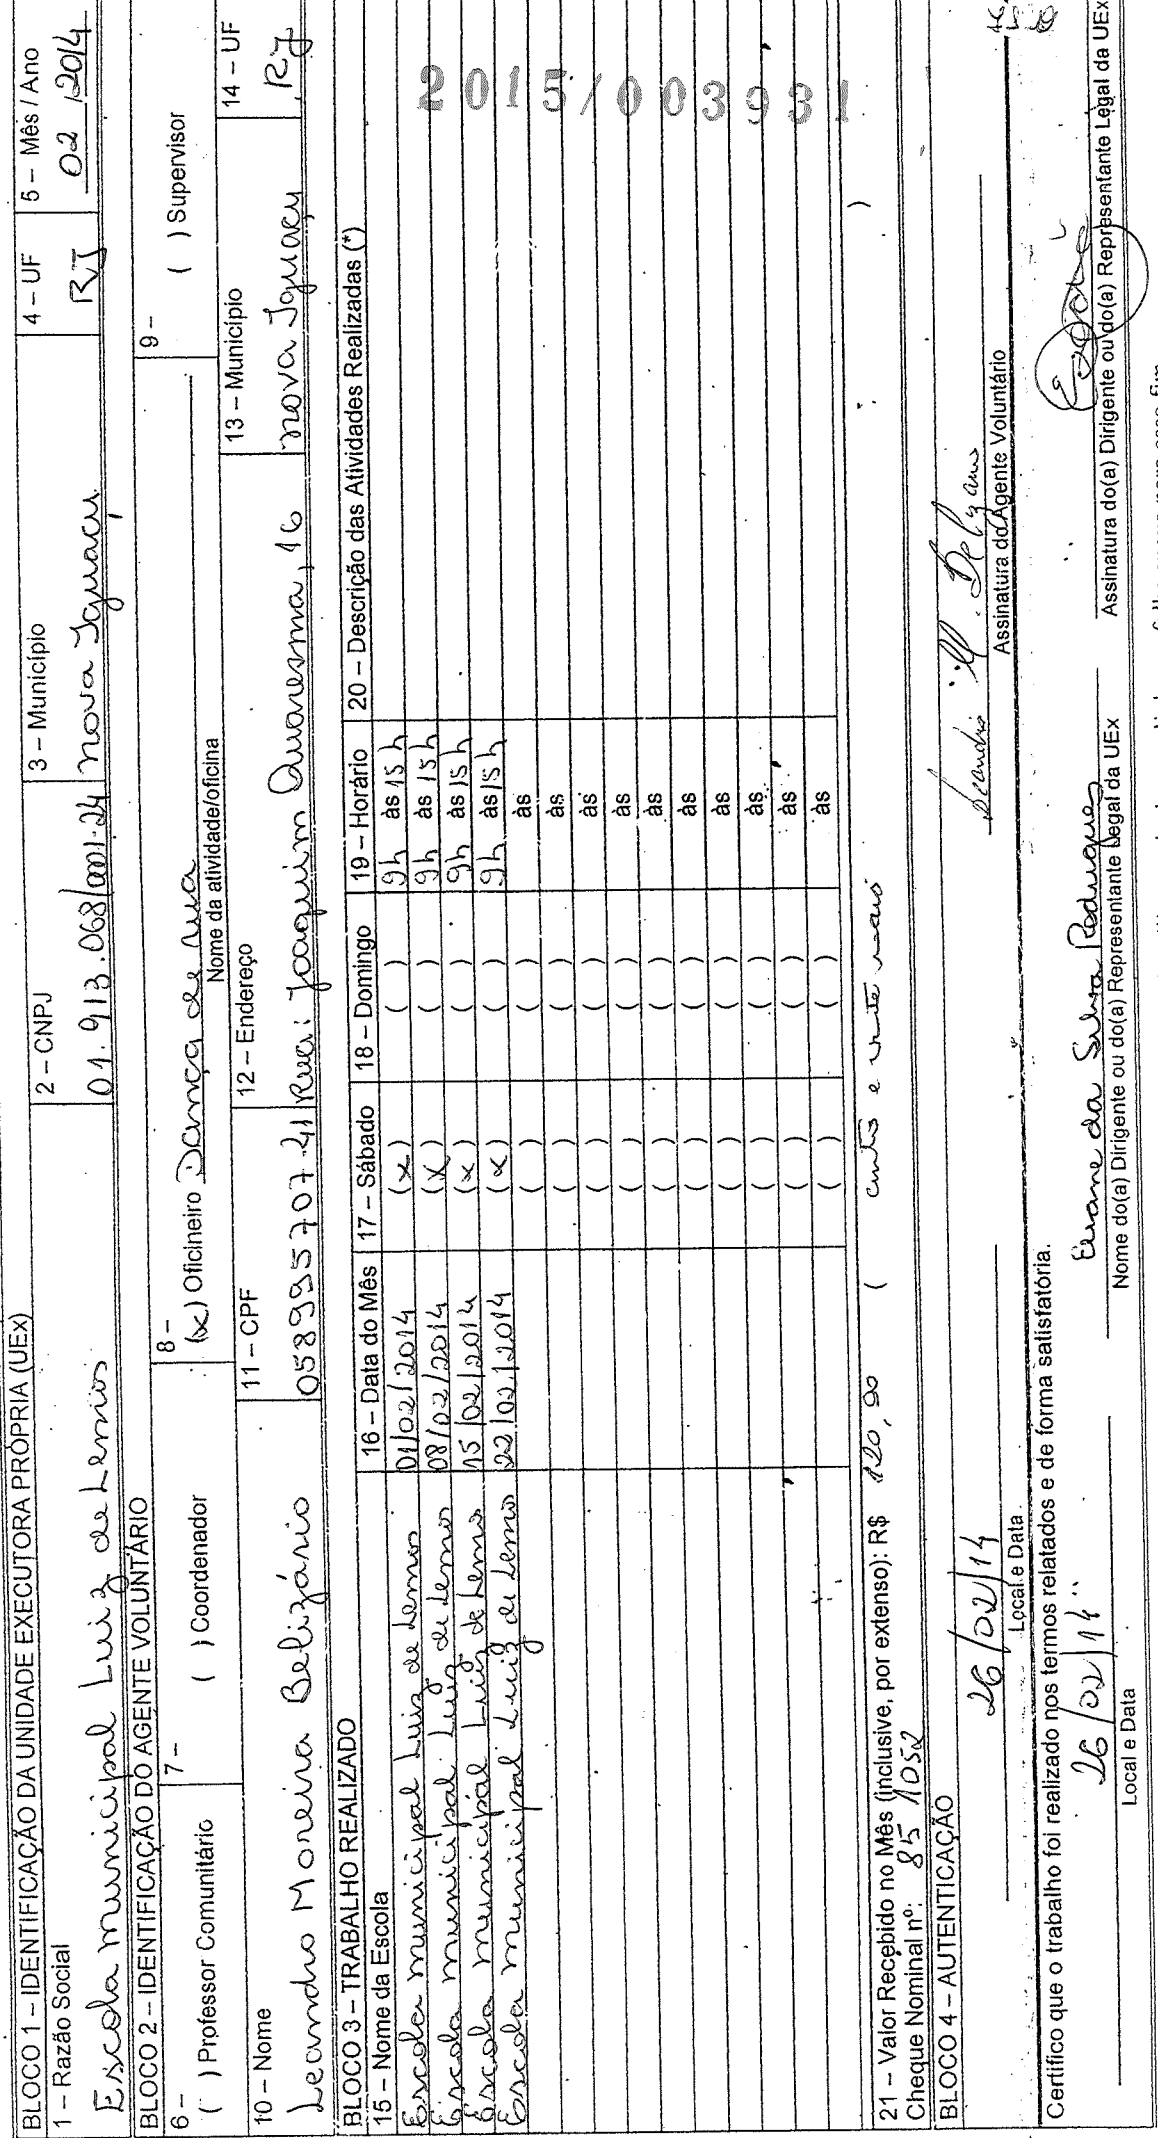 BLOCO 1 – IDENTIFICAÇÃO DA UNIDADE EXECUTORA PRÓPRIA (UEx)
1 – Razão Social 2 – CNPJ 3 – Município 4 – UF 5 – Mês / Ano
Escola municipal Luiz de Lemos 01.913.068/0001-24 nova Iguaçu RJ 02/2014
BLOCO 2 – IDENTIFICAÇÃO DO AGENTE VOLUNTÁRIO
6 – 7 – 8 – 9 –
( ) Professor Comunitário ( ) Coordenador (x) Oficineiro Dança de rua ( ) Supervisor
Nome da atividade/oficina
10 – Nome 11 – CPF 12 – Endereço 13 – Município 14 – UF
Leandro Moreira Belizário 058995707-41 Rua: Joaquim Quaresma, 16 nova Iguaçu RJ
BLOCO 3 – TRABALHO REALIZADO
15 – Nome da Escola 16 – Data do Mês 17 – Sábado 18 – Domingo 19 – Horário 20 – Descrição das Atividades Realizadas (*)
Escola municipal Luiz de Lemos 01/02/2014 (x) ( ) 9h às 15h
Escola municipal Luiz de Lemos 08/02/2014 (x) ( ) 9h às 15h
Escola municipal Luiz de Lemos 15/02/2014 (x) ( ) 9h às 15h
Escola municipal Luiz de Lemos 22/02/2014 (x) ( ) 9h às 15h
( ) ( ) às
( ) ( ) às
( ) ( ) às
( ) ( ) às
( ) ( ) às
( ) ( ) às
( ) ( ) às
( ) ( ) às
( ) ( ) às
( ) ( ) às
2015/003931
21 – Valor Recebido no Mês (inclusive, por extenso): R$ 120,00 ( cento e vinte reais )
Cheque Nominal nº: 851052
BLOCO 4 – AUTENTICAÇÃO
26/02/14 Leandro M. Belizario
Local e Data Assinatura do Agente Voluntário
Certifico que o trabalho foi realizado nos termos relatados e de forma satisfatória.
26/02/14 da Silva Rodrigues
Local e Data Nome do(a) Dirigente ou do(a) Representante Legal da UEx Assinatura do(a) Dirigente ou do(a) Representante Legal da UEx